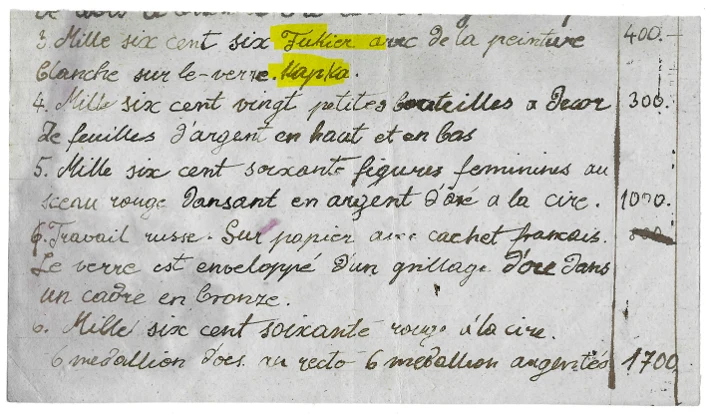 3. Mille six cent six Fukier avec de la peinture 400.-
blanche sur le-verre. Kapka.
4. Mille six cent vingt petites bouteilles a Decor 300.
De feuilles d'argent en haut et en bas
5. Mille six cent soixante figures feminines au
sceau rouge Dansant en argent d'oré a la cire. 1000.
6. Travail russe. Sur papier avec cachet francais.
Le verre est enveloppé D'un grillage d'ore Dans
un cadre en bronze.
6. Mille six cent soixante rouge á la cire.
6 medallion d'ors au recto 6 medallion argentés 1700